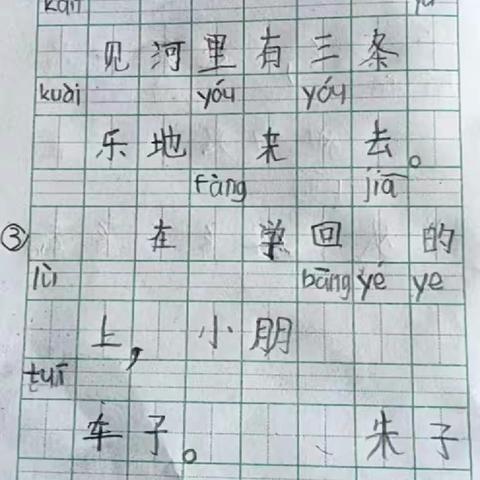 kàn yú
见河里有三条
kuài yóu yóu
乐地来去。
fàng jiā
③在学回的
lù bāng yé ye
上,小朋
tuī
车子。朱子